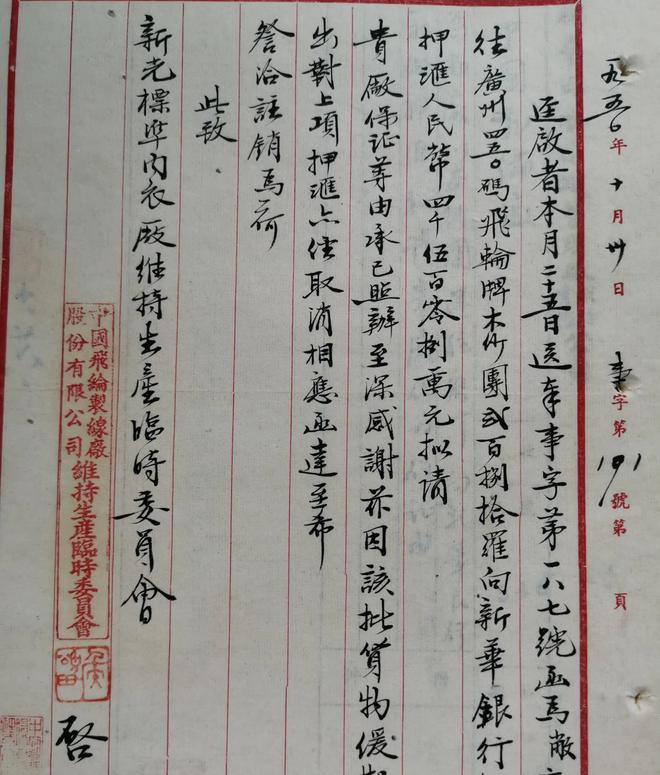 一九五〇年十月卅日 事字第191號第 頁
逕啟者本月二十五日送奉事字第一八七號函為敝
往廣州四五〇碼飛輪牌木竹團弍百捌拾羅向新華銀行
押滙人民幣四千伍百零捌萬元拟请
貴厰保证等由承已照辦至深感謝茲因該批貨物缓
出對上項押滙亦使取消相應函達至希
詧洽註銷為荷
此致
新光標準內衣厰維持生產臨時委員會
中國飛綸製線廠股份有限公司維持生產臨時委員會
啓